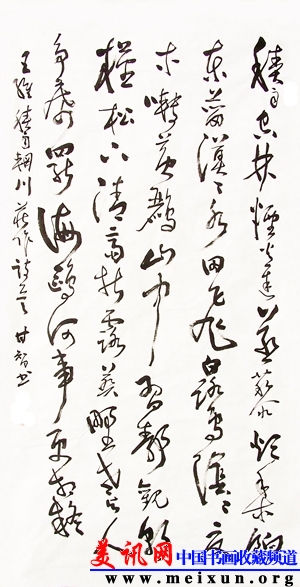 積雨空林煙火遲蒸藜炊黍餉
東菑漠〻水田飛白鷺陰〻夏
木囀黃鸝山中習靜觀朝
槿松下清齋折露葵野老與人
爭席罷海鷗何事更相疑
王維積雨輞川莊作詩 甘智書
美讯网 中国书画收藏频道
www.meixun.org